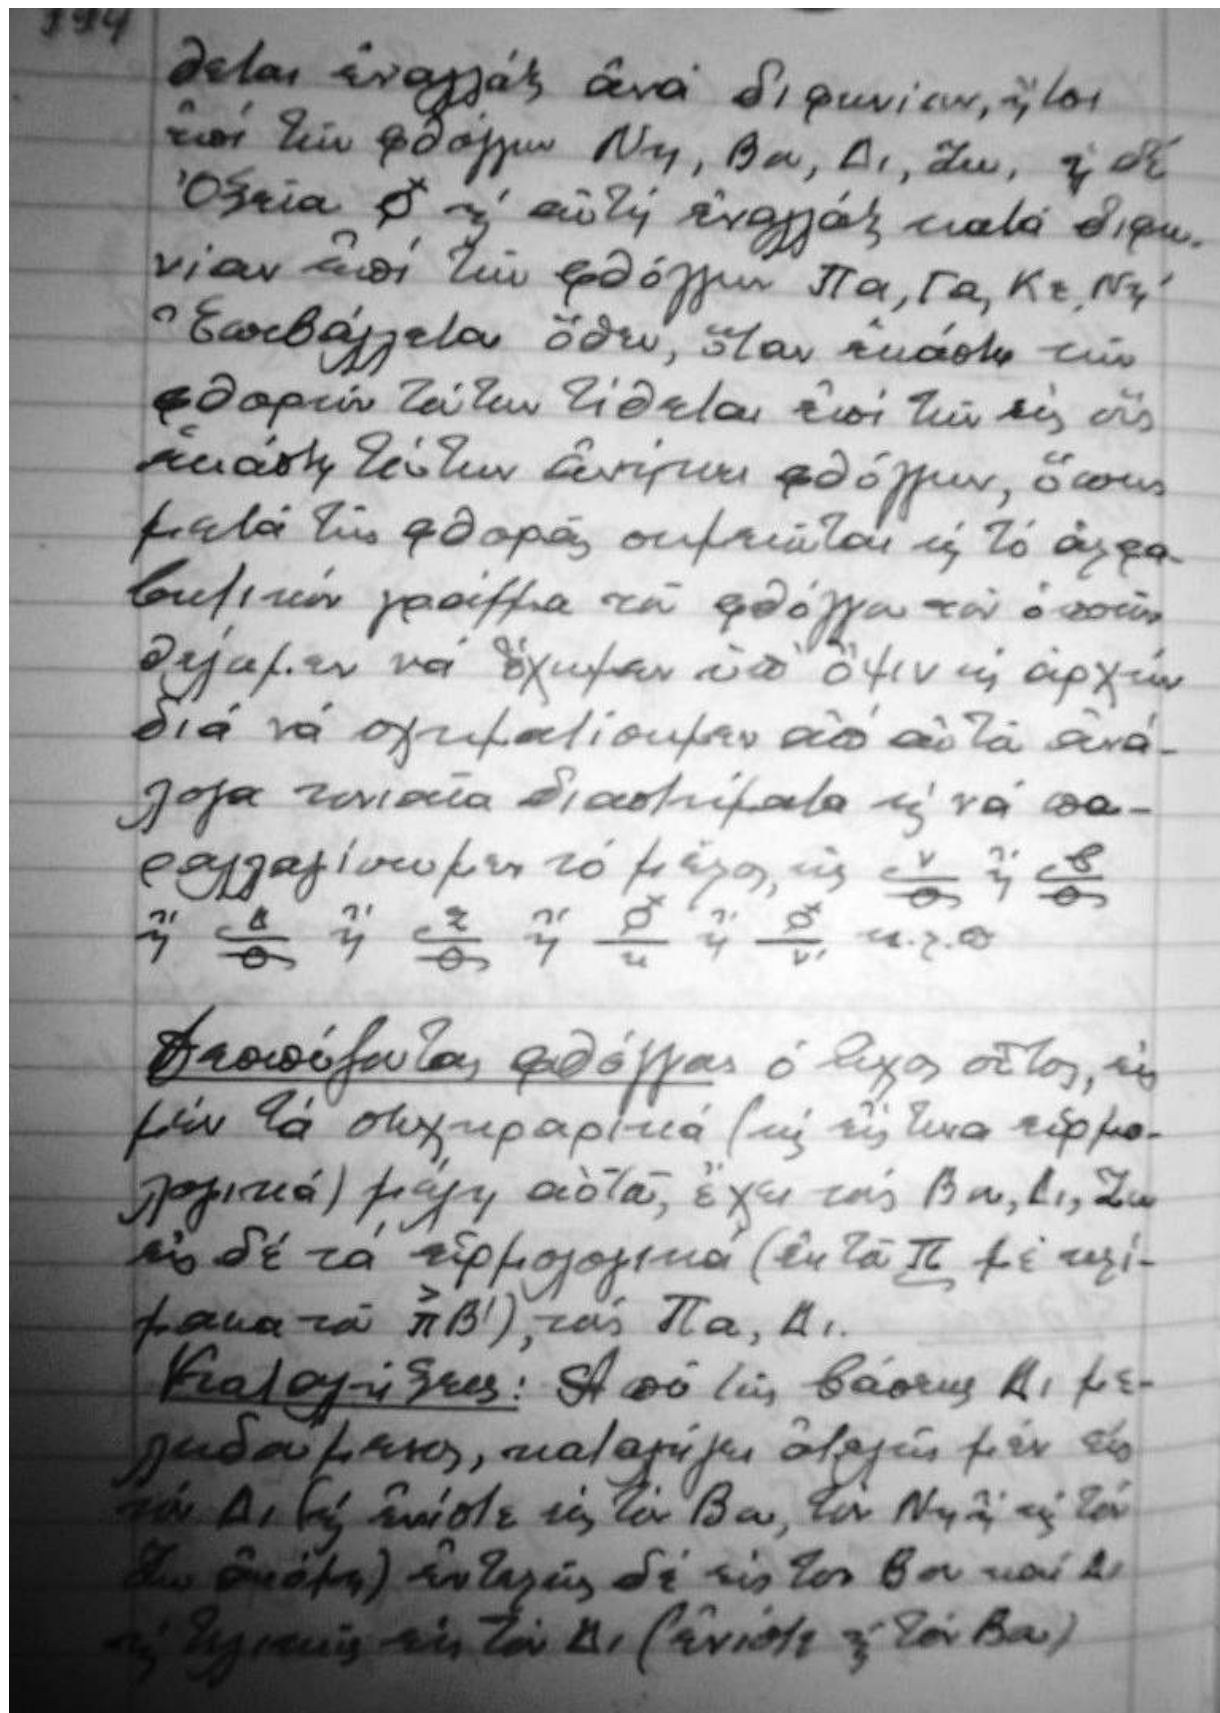 194
θεται ἐναλλάξ ἀνά διφωνίαν, ἤτοι
ἐπί τῶν φθόγγων Νη, Βα, Δι, Ζω, ἡ δέ
Ὀξεῖα ἡ αὐτή ἐναλλάξ κατά διφω-
νίαν ἐπί τῶν φθόγγων Πα, Γα, Κε, Νη'
Ἐπιβάλλεται ὅθεν, ὅταν ἑκάστη τῶν
φθορῶν τούτων τίθεται ἐπί τῶν εἰς οὕς
ἑκάστη τούτων ἀνήκει φθόγγων, ὅπως
μετά τῆς φθορᾶς σημειοῦται καί τό ἀλφα-
βητικόν γράμμα τοῦ φθόγγου τόν ὁποῖον
θέλομεν νά ἔχωμεν ὑπ' ὄψιν ὡς ἀρχήν
διά νά σχηματίσωμεν ἀπό αὐτοῦ ἀνά-
λογα τονιαῖα διαστήματα καί νά πα-
ραλλαγίσωμεν τό μέλος, ὡς ν ἤ β
ἤ Δ ἤ ζ ἤ κ ἤ ν' κ.λ.π
Δεσπόζοντας φθόγγους ὁ ἦχος οὗτος, εἰς
μέν τά στιχηραρικά (καί εἴς τινα εἱρμο-
λογικά) μέλη αὐτοῦ, ἔχει τούς Βα, Δι, Ζω
εἰς δέ τά εἱρμολογικά (ἐκ τοῦ Π μέ κλί-
μακα τοῦ π Β'), τούς Πα, Δι.
Καταλήξεις: Ἀπό τῆς βάσεως Δι με-
λωδούμενος, καταλήγει ἀτελῶς μέν εἰς
τόν Δι (καί ἐνίοτε εἰς τόν Βα, τόν Νη ἤ εἰς τόν
Ζω ἀκόμη) ἐντελῶς δέ εἰς τόν Βα καί Δι
καί τελικῶς εἰς τόν Δι (ἐνίοτε ἤ τόν Βα)